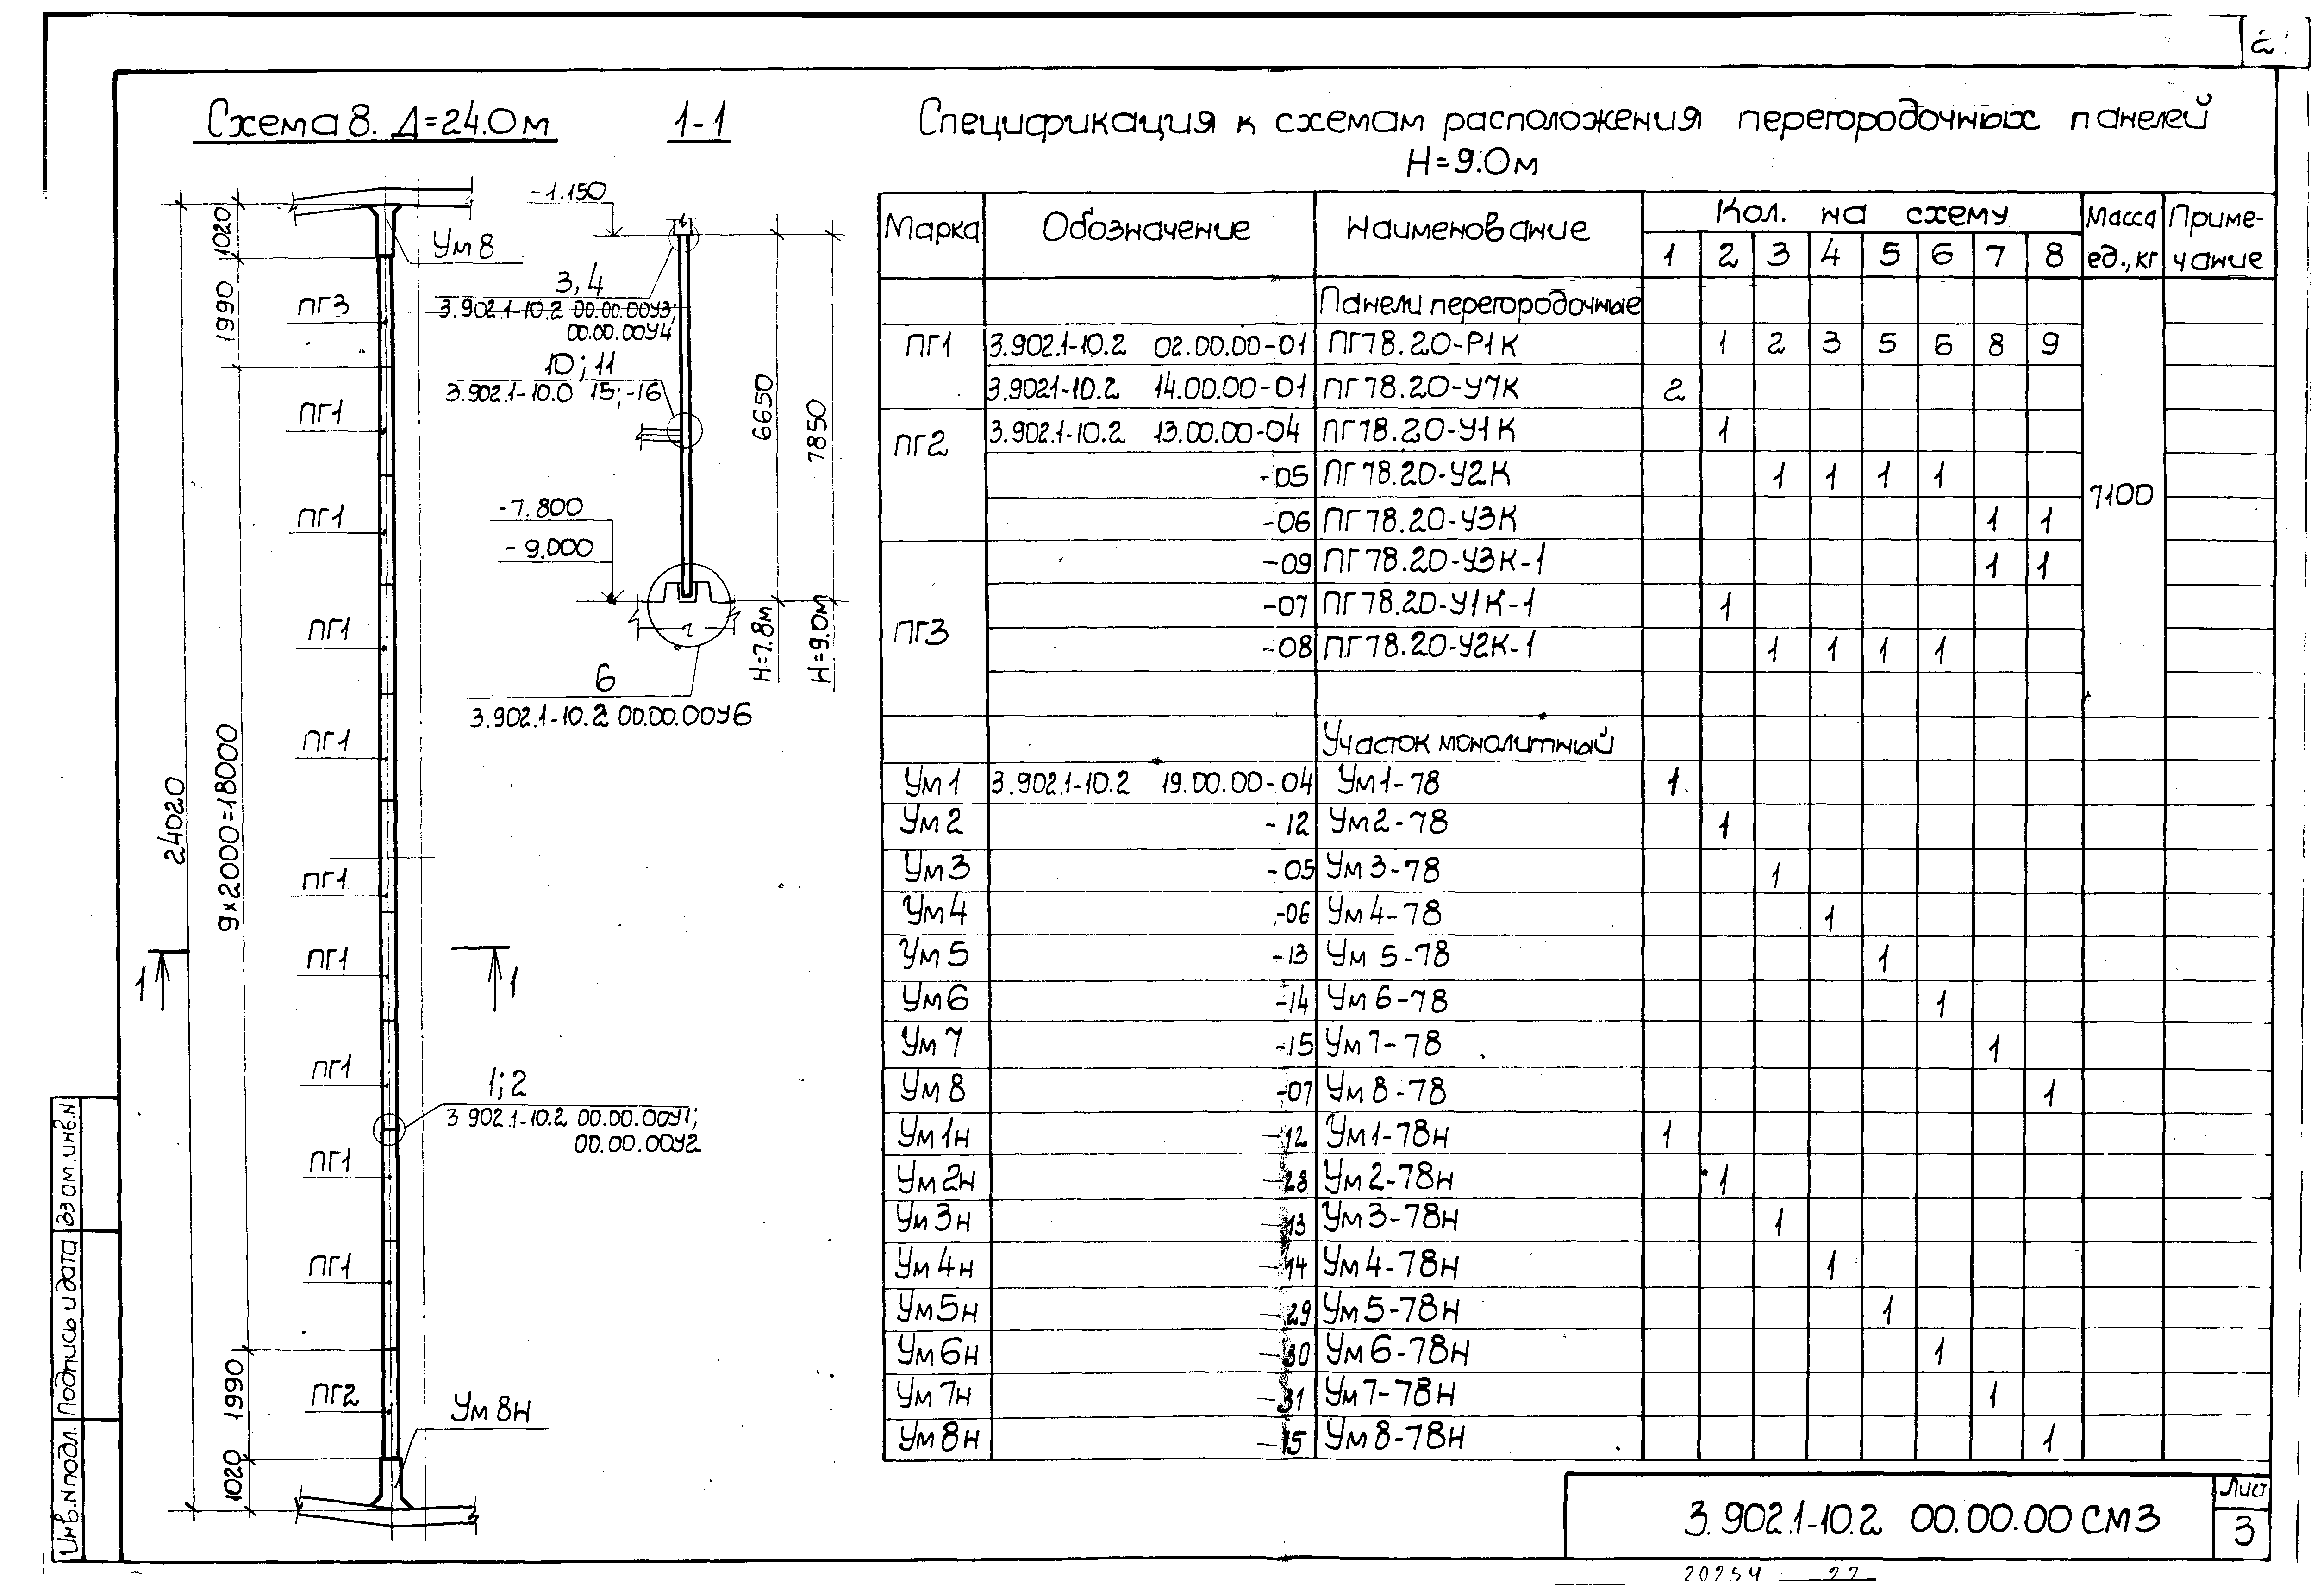 Схема 8. Д=24.0м
1-1
Спецификация к схемам расположения перегородочных панелей
Н=9.0м
24020
1020
1990
9×2000=18000
1990
1020
Ум8
ПГ3
ПГ1
ПГ1
ПГ1
ПГ1
ПГ1
ПГ1
ПГ1
ПГ1
ПГ1
ПГ2
Ум8н
1
1
1;2
3.902.1-10.2 00.00.00У1;
00.00.00У2
-1.150
3,4
3.902.1-10.2 00.00.00У3;
00.00.00У4
10;11
3.902.1-10.0 15;-16
-7.800
-9.000
6650
7850
Н=7.8м
Н=9.0м
6
3.902.1-10.2 00.00.00У6
Марка Обозначение Наименование Кол. на схему Масса ед.,кг Приме-чание
1 2 3 4 5 6 7 8
Панели перегородочные
ПГ1 3.902.1-10.2 02.00.00-01 ПГ78.20-Р1К 1 2 3 5 6 8 9
3.902.1-10.2 14.00.00-01 ПГ78.20-У7К 2
ПГ2 3.902.1-10.2 13.00.00-04 ПГ78.20-У1К 1
-05 ПГ78.20-У2К 1 1 1 1
7100
-06 ПГ78.20-У3К 1 1
-09 ПГ78.20-У3К-1 1 1
ПГ3 -07 ПГ78.20-У1К-1 1
-08 ПГ78.20-У2К-1 1 1 1 1
Участок монолитный
Ум1 3.902.1-10.2 19.00.00-04 Ум1-78 1
Ум2 -12 Ум2-78 1
Ум3 -05 Ум3-78 1
Ум4 -06 Ум4-78 1
Ум5 -13 Ум5-78 1
Ум6 -14 Ум6-78 1
Ум7 -15 Ум7-78 1
Ум8 -07 Ум8-78 1
Ум1н -12 Ум1-78н 1
Ум2н -28 Ум2-78н 1
Ум3н -13 Ум3-78н 1
Ум4н -14 Ум4-78н 1
Ум5н -29 Ум5-78н 1
Ум6н -30 Ум6-78н 1
Ум7н -31 Ум7-78н 1
Ум8н -15 Ум8-78н 1
Инв.N подл. Подпись и дата Взам.инв.N
3.902.1-10.2 00.00.00 СМ3
Лист
3
20254 22